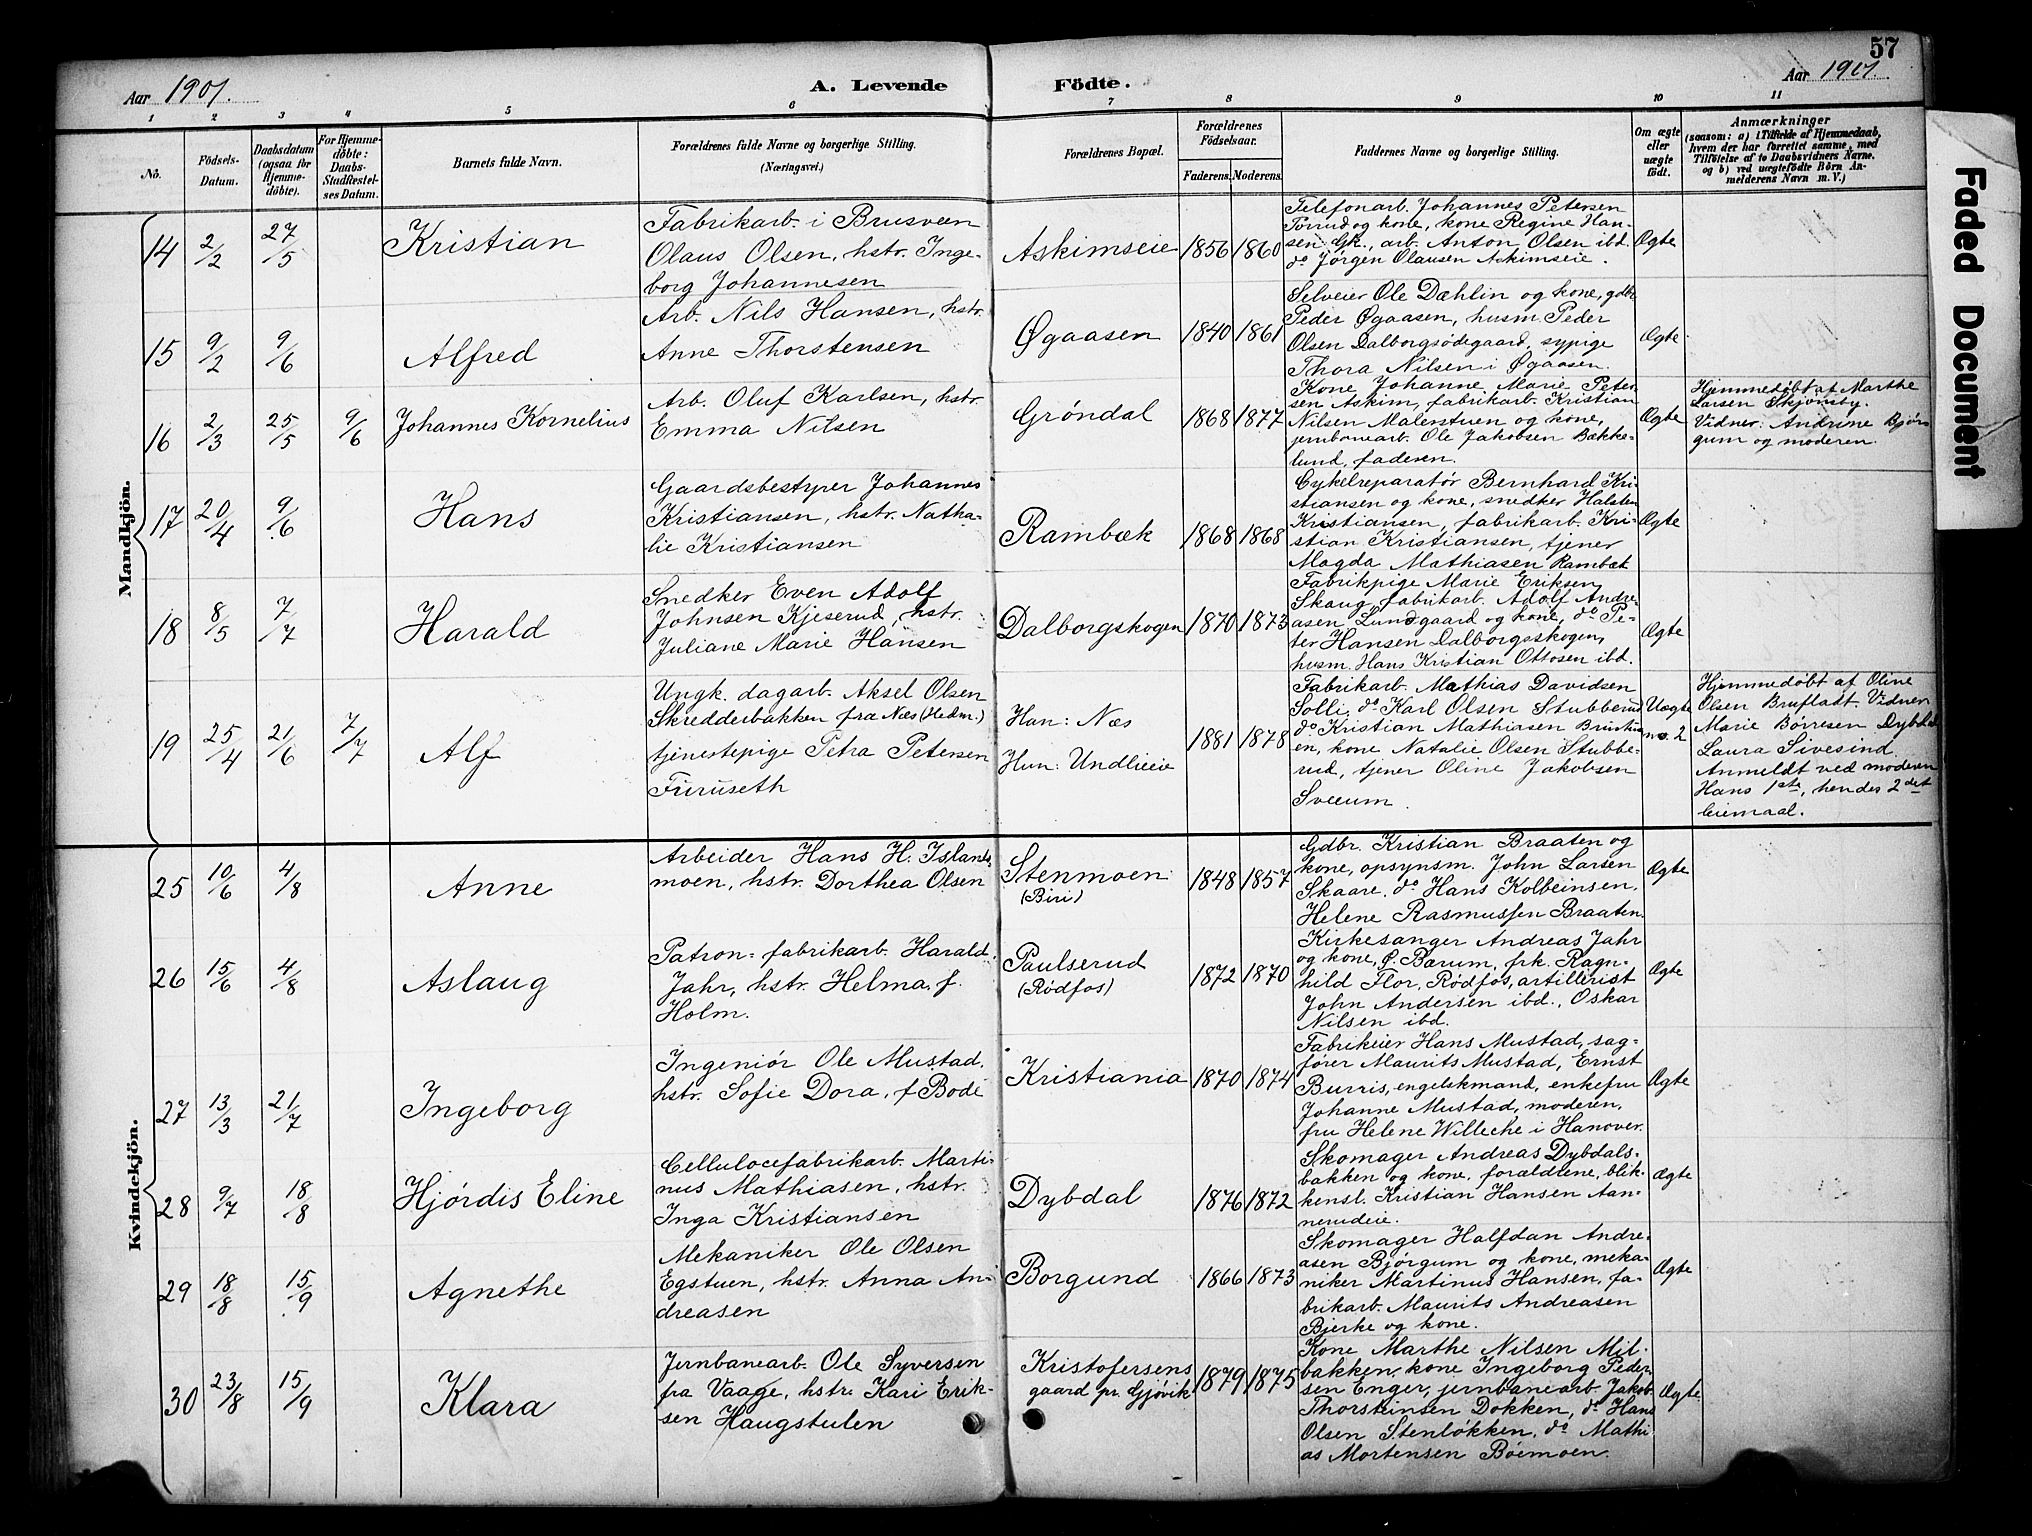 57
Aar 1901.
A. Levende
Födte.
Aar 1901.
1 2 3 4 5 6 7 8 9 10 11
No.
Födsels-
Datum.
Daabsdatum
(ogsaa for
Hjemme-
döbte).
For Hjemme-
döbte:
Daabs-
Stadfæstel-
ses Datum.
Barnets fulde Navn.
Forældrenes fulde Navne og borgerlige Stilling.
(Næringsvei.)
Forældrenes Bopæl.
Forældrenes
Födselsaar.
Faderens.
Moderens.
Faddernes Navne og borgerlige Stilling.
Om ægte
eller
uægte
födt.
Anmærkninger
(saasom: a) i Tilfælde af Hjemmedaab,
hvem der har forrettet samme, med
Tilföielse af to Daabsvidners Navne.
og b) ved uægtefödte Börn An-
melderens Navn m. V.)
Faded Document
Mandkjön.
14 2/2 27/5 Kristian
Fabrikarb. i Brusveen
Olaus Olsen, hstr. Inge-
borg Johannesen
Askimseie 1856 1860
Telefonarb. Johannes Petersen
Torrud og kone, kone Regine Han-
sen Gk., arb. Anton Olsen ibd.
do Jørgen Olausen Askimseie.
Ægte
15 9/2 9/6 Alfred
Arb. Nils Hansen, hstr.
Anne Thorstensen
Øgaasen 1840 1861
Selveier Ole Dæhlin og kone, gdbr.
Peder Øgaasen, husm. Peder
Olsen Dalborgsødegaard, sypige
Thora Nilsen i Øgaasen.
Ægte
16 2/3 25/5 9/6 Johannes Kornelius
Arb. Oluf Karlsen, hstr.
Emma Nilsen
Grøndal 1868 1877
Kone Johanne Marie Peter-
sen Askim, fabrikarb. Kristian
Nilsen Malerstuen og kone,
jernbanearb. Ole Jakobsen Bække-
lund, faderen.
Ægte
Hjemmedøbt af Marthe
Larsen Skjønsby.
Vidner: Andrine Bjørn
gum og moderen.
17 20/4 9/6 Hans
Gaardsbestyrer Johannes
Kristiansen, hstr. Natha-
lie Kristiansen
Rambæk 1868 1868
Cykelreparatør Bernhard Kri-
stiansen og kone, snedker Halsten
Kristiansen, fabrikarb. Kri-
stian Kristiansen, tjener
Magda Mathiasen Rambæk
Ægte
18 8/5 7/7 Harald
Snedker Even Adolf
Johnsen Kjeserud, hstr.
Juliane Marie Hansen
Dalborgskogen 1870 1873
Fabrikpige Marie Eriksen
Skaug, fabrikarb. Adolf Andre-
asen Lundgaard og kone, do Pe-
ter Hansen Dalborgsskogen,
husm. Hans Kristian Ottosen ibd.
Ægte
19 25/4 21/6 7/7 Alf
Ungk. dagarb. Aksel Olsen
Skredderbakken fra Næs (Hedm.)
tjenestepige Petra Petersen
Furuseth
Han: Næs
Hun: Undlieeie
1881 1878
Fabrikarb. Mathias Davidsen
Solli, do Karl Olsen Stubberud
do Kristian Mathiasen
en, kone Natalie Olsen Stubbe-
rud, tjener Oline Jakobsen
Sveum.
Uægte
no. 2
Hjemmedøbt af Oline
Olsen Brufladt. Vidner
Marie Børresen Dybdal
Laura Sivesind.
Anmeldt ved moderen
Hans 1ste, hendes 2det
leiemaal.
Kvindekjön.
25 10/6 4/8 Anne
Arbeider Hans H. Islands-
moen, hstr. Dorthea Olsen
Stenmoen
(Biri)
1848 1857
Gdbr. Kristian Braaten og
kone, opsynsm. John Larsen
Skaare, do Hans Kolbeinsen,
Helene Rasmussen Braaten.
Ægte
26 15/6 4/8 Aslaug
Patron-fabrikarb. Harald
Jahr, hstr. Helma f.
Holm.
Paulserud
(Rødfos)
1872 1870
Kirkesanger Andreas Jahr
og kone, Ø. Bærum, frk. Ragn-
hild Flor, Rødfos, artillerist
John Andersen ibd., Oskar
Nilsen ibd.
Ægte
27 13/3 21/7 Ingeborg
Ingeniør Ole Mustad,
hstr. Sofie Dora, f. Bode
Kristiania 1870 1874
Fabrikeier Hans Mustad, sag-
fører Maurits Mustad, Ernst
Burris, engelskmand, enkefru
Johanne Mustad, moderen,
fru Helene Willeche i Hanover.
Ægte
28 9/7 18/8 Hjørdis Eline
Cellulocefabrikarb. Marti-
nus Mathiasen, hstr.
Inga Kristiansen
Dybdal 1876 1872
Skomager Andreas Dybdals-
bakken og kone, forældrene, blik-
kensl. Kristian Hansen Aan-
nerudeie.
Ægte
29 18/8 15/9 Agnethe
Mekaniker Ole Olsen
Egstuen, hstr. Anna An-
dreasen
Borgund 1866 1873
Skomager Halfdan Andre-
asen Bjørgum og kone, meka-
niker Martinus Hansen, fa-
brikarb. Maurits Andreasen
Bjerke og kone.
Ægte
30 23/8 15/9 Klara
Jernbanearb. Ole Syversen
fra Vaage, hstr. Kari Erik-
sen Haugstulen
Kristofersens
gaard pr. Gjøvik
1879 1875
Kone Marthe Nilsen Mil-
bakken, kone Ingeborg Peder-
sen Enger, jernbanearb. Jakob
Thorsteinsen Dokken, do Hans
Olsen Stenløkken, do Mathi
as Mortensen Bøemoen.
Ægte